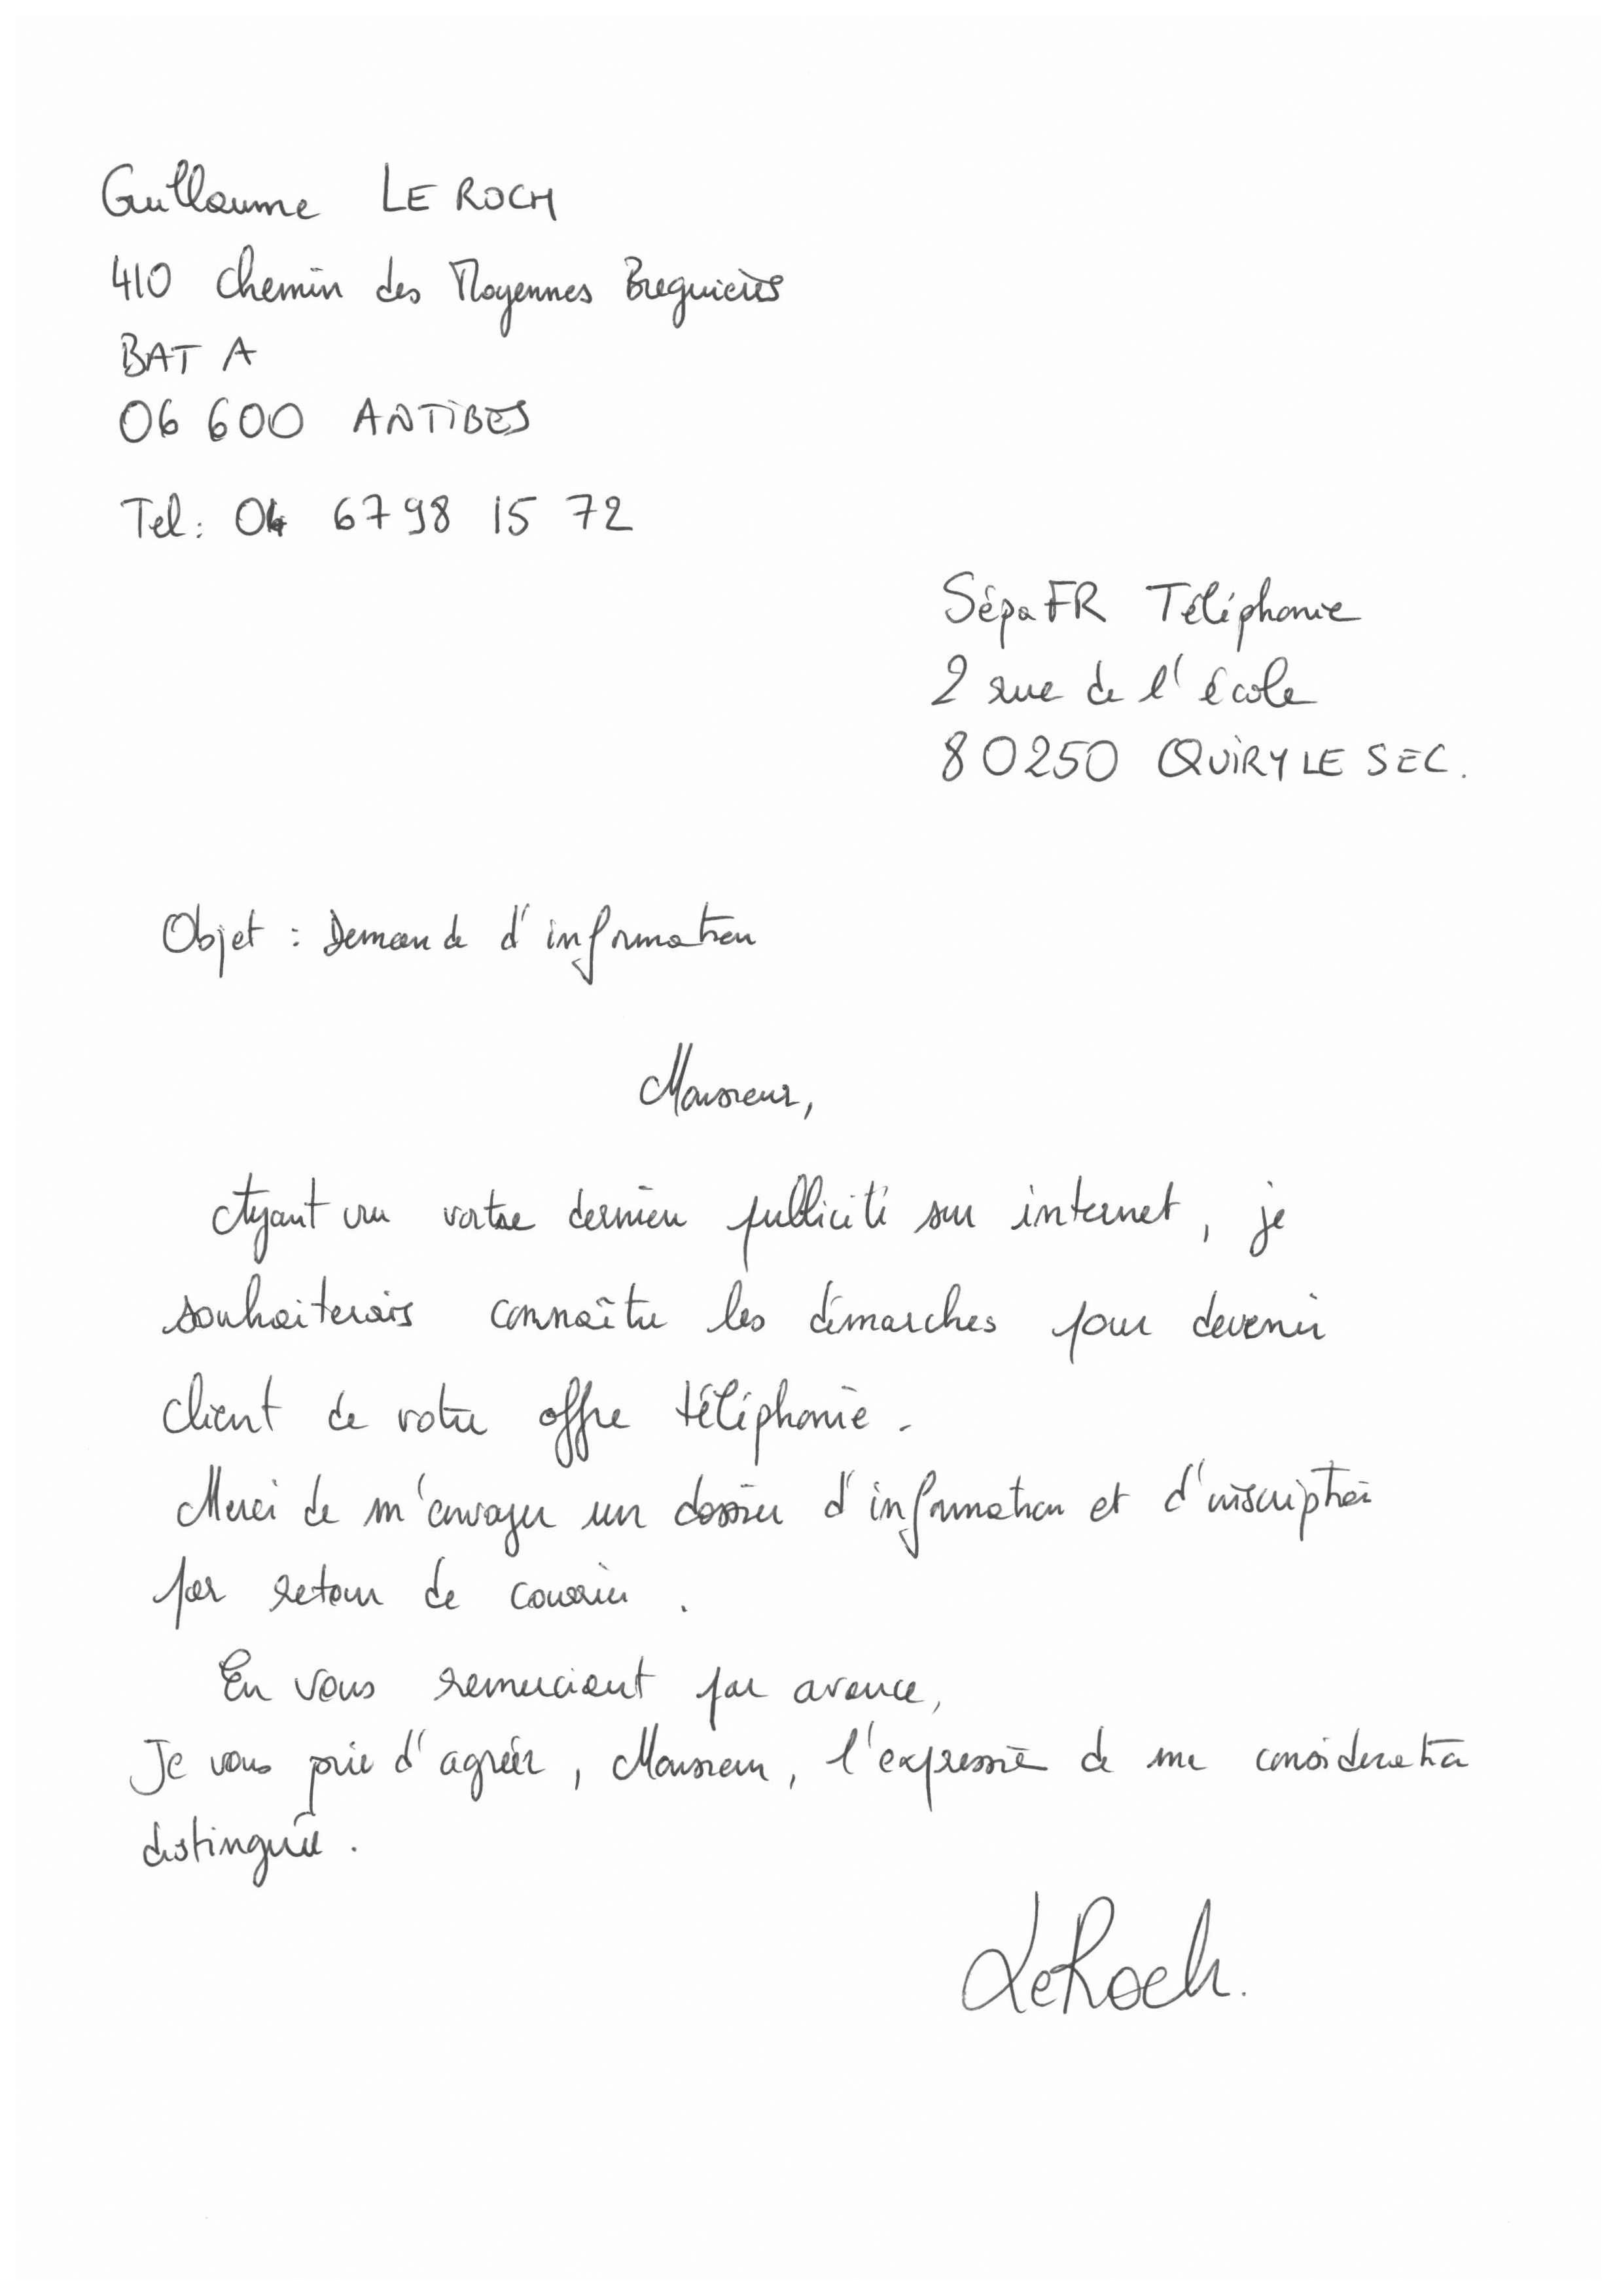 Guillaume LE ROCH
410 chemin des Moyennes Breguières
BAT A
06 600 ANTIBES
Tel : 04 67 98 15 72
SépaFR Téléphonie
2 rue de l'école
80250 QUIRY LE SEC.
Objet : Demande d'information
Monsieur,
Ayant vu votre dernière publicité sur internet, je
souhaiterais connaître les démarches pour devenir
client de votre offre téléphonie.
Merci de m'envoyer un dossier d'information et d'inscription
par retour de courrier.
En vous remerciant par avance,
Je vous prie d'agréer, Monsieur, l'expression de ma considération
distinguée.
LeRoch.